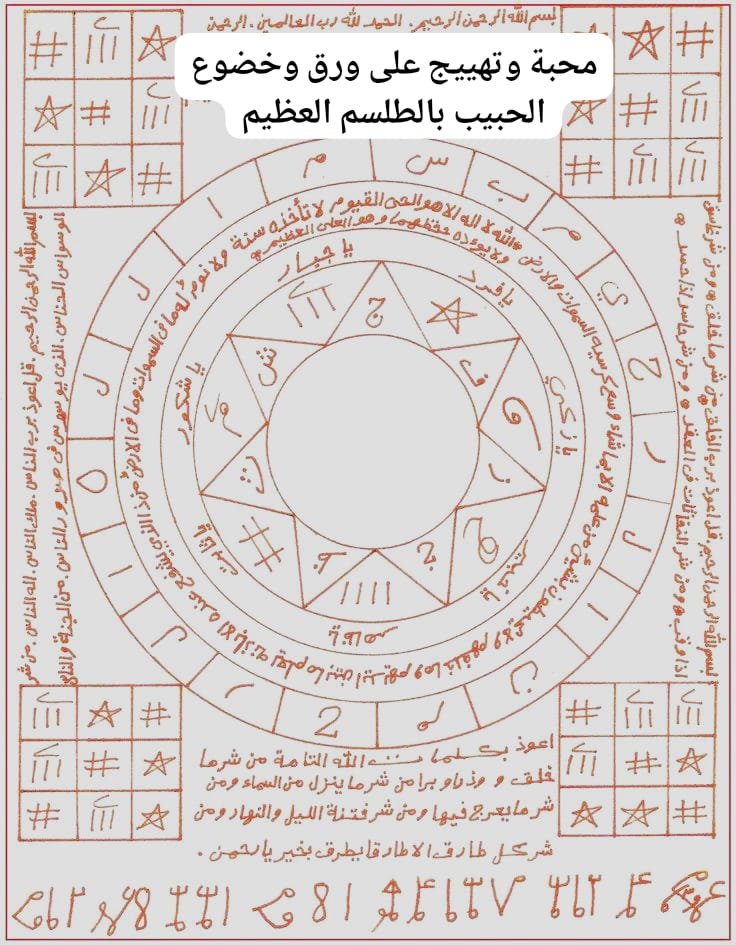 بسم الله الرحمن الرحيم . الحمد لله رب العالمين . الرحمن
محبة وتهييج على ورق وخضوع
الحبيب بالطلسم العظيم
بسم الله الرحمن الرحيم
الله لا اله الا هو الحي القيوم لا تأخذه سنة ولا نوم له ما في السموات وما في الارض من ذا الذي يشفع عنده الا باذنه يعلم ما بين ايديهم وما خلفهم ولا يحيطون بشئ من علمه الا بما شاء وسع كرسيه السموات والارض
ولا يؤده حفظهما وهو العلي العظيم
يا فرد
يا جبار
يا شكور
يا ثابت
يا زكي
ف
ج
ش
ث
ظ
خ
ز
بسم الله الرحمن الرحيم . قل اعوذ برب الناس . ملك الناس . اله الناس . من شر
الوسواس الخناس . الذي يوسوس في صدور الناس . من الجنة والناس
بسم الله الرحمن الرحيم . قل اعوذ برب الفلق من شر ما خلق ومن شر غاسق
اذا وقب ومن شر النفاثات في العقد ومن شر حاسد اذا حسد
اعوذ بكلمات الله التامة من شر ما
خلق و وذراو برا من شر ما ينزل من السماء ومن
شر ما يعرج فيها ومن شر فتنة الليل والنهار ومن
شر كل طارق الا طارقا يطرق بخير يا رحمن .